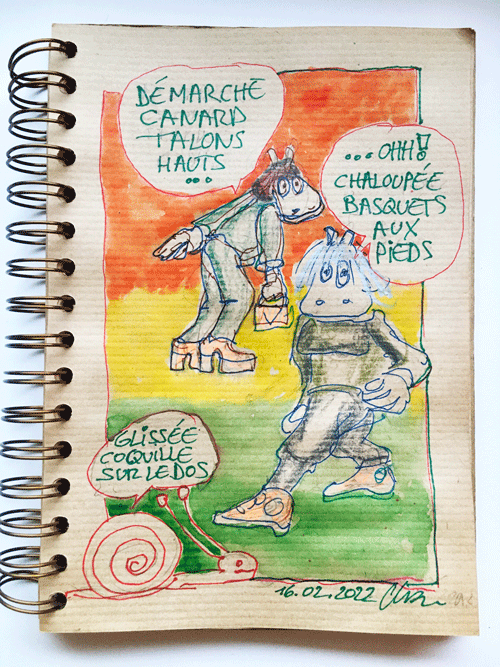 DÉMARCHE
CANARD
TALONS
HAUTS
...
...OHH!
CHALOUPÉE
BASQUETS
AUX
PIEDS
GLISSÉE
COQUILLE
SUR LE DOS
16.02.2022